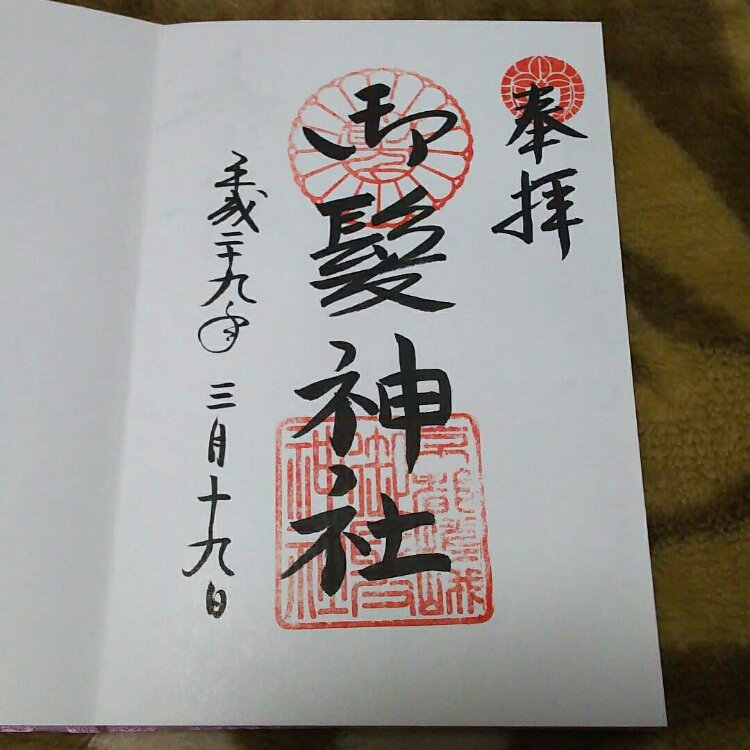 奉拝
御髪神社
平成二十九年 三月十九日
京都嵯峨
御髪
神社